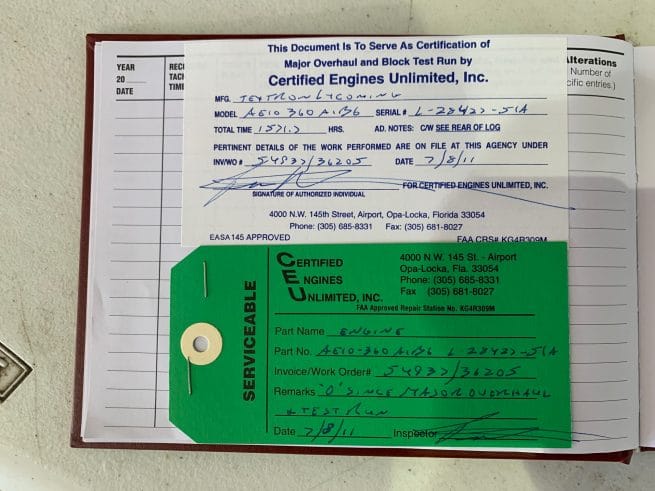 YEAR
20
DATE
TACH
TIME
lterations
Number of
cific entries.)
This Document Is To Serve As Certification of
Major Overhaul and Block Test Run by
Certified Engines Unlimited, Inc.
MFG. TEXTRON LYCOMING
MODEL AEIO 360 A1B6 SERIAL# L-28427-51A
TOTAL TIME 1571.7 HRS. AD. NOTES: C/W SEE REAR OF LOG
PERTINENT DETAILS OF THE WORK PERFORMED ARE ON FILE AT THIS AGENCY UNDER
INV/WO# 54937/36205 DATE 7/8/11
FOR CERTIFIED ENGINES UNLIMITED, INC.
SIGNATURE OF AUTHORIZED INDIVIDUAL
4000 N.W. 145th Street, Airport, Opa-Locka, Florida 33054
Phone: (305) 685-8331 Fax: (305) 681-8027
EASA145 APPROVED FAA CRS# KG4R309M
SERVICEABLE
CERTIFIED
ENGINES
UNLIMITED, INC.
4000 N.W. 145 St. - Airport
Opa-Locka, Fla. 33054
Phone: (305) 685-8331
Fax (305) 681-8027
FAA Approved Repair Station No. KG4R309M
Part Name ENGINE
Part No. AEIO-360 A1B6 L-28427-51A
Invoice/Work Order# 54937/36205
Remarks "0" SINCE MAJOR OVERHAUL
& TEST RUN
Date 7/8/11 Inspector